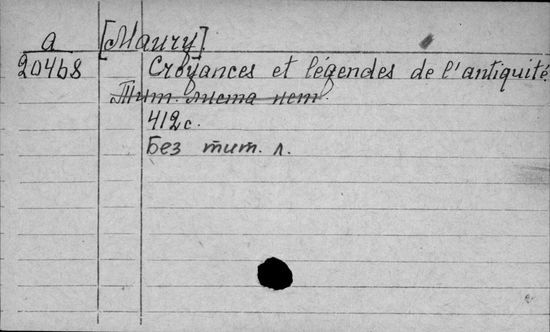 a [Maury].
20468 Croyances et légendes de l'antiquité.
Тит. листа нет.
412 с.
Без тит. л.